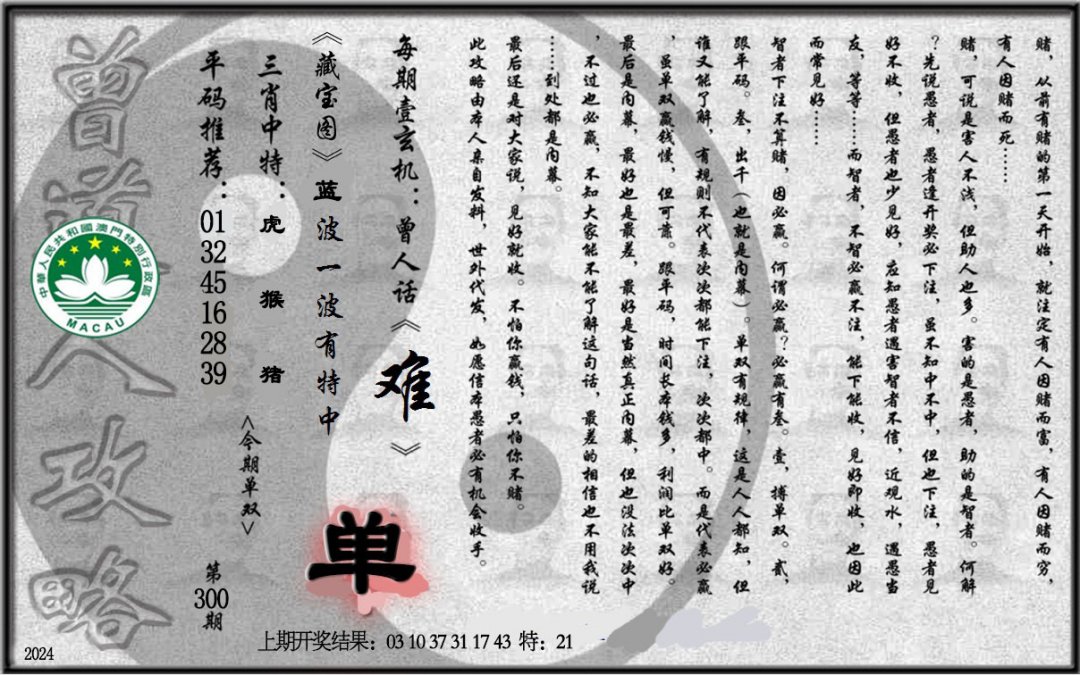 赌，从前有赌的第一天开始，就注定有人因赌而富，有人因赌而穷，
有人因赌而死……
赌，可说是害人不浅，但助人也多。害的是愚者，助的是智者。何解
？先说愚者，愚者逢开奖必下注，虽不知中不中，但也下注，愚者见
好不收，但愚者也少见好，应知愚者遇害智者不信，近观水，遇愚当
友，等等……而智者，不智必赢不注，能下能收，见好即收，也因此
而常见好……
智者下注不算赌，因必赢。何谓必赢？必赢有叁。壹，搏单双。贰，
跟平码。叁，出千（也就是内幕）。单双有规律，这是人人都知，但
谁又能了解，有规则不代表次次都能下注，次次都中。而是代表必赢
，虽单双赢钱慢，但可靠。跟平码，时间长本钱多，利润比单双好。
最后是内幕，最好也是最差，最好是当然真正内幕，但也没法次次中
，不过也必赢，不知大家能不能了解这句话，最差的相信也不用我说
……到处都是内幕。
最后还是对大家说，见好就收。不怕你赢钱，只怕你不赌。
此攻略由本人亲自发料，世外代发，如愿信本愚者必有机会收手。
每期壹玄机：曾人话《难》
《藏宝图》蓝波一波有特中
单
三肖中特：虎 猴 猪
<今期单双>
平码推荐：01 32 45 16 28 39
第300期
曾道人攻略
中華人民共和國澳門特別行政區
MACAU
上期开奖结果：03 10 37 31 17 43 特：21
2024